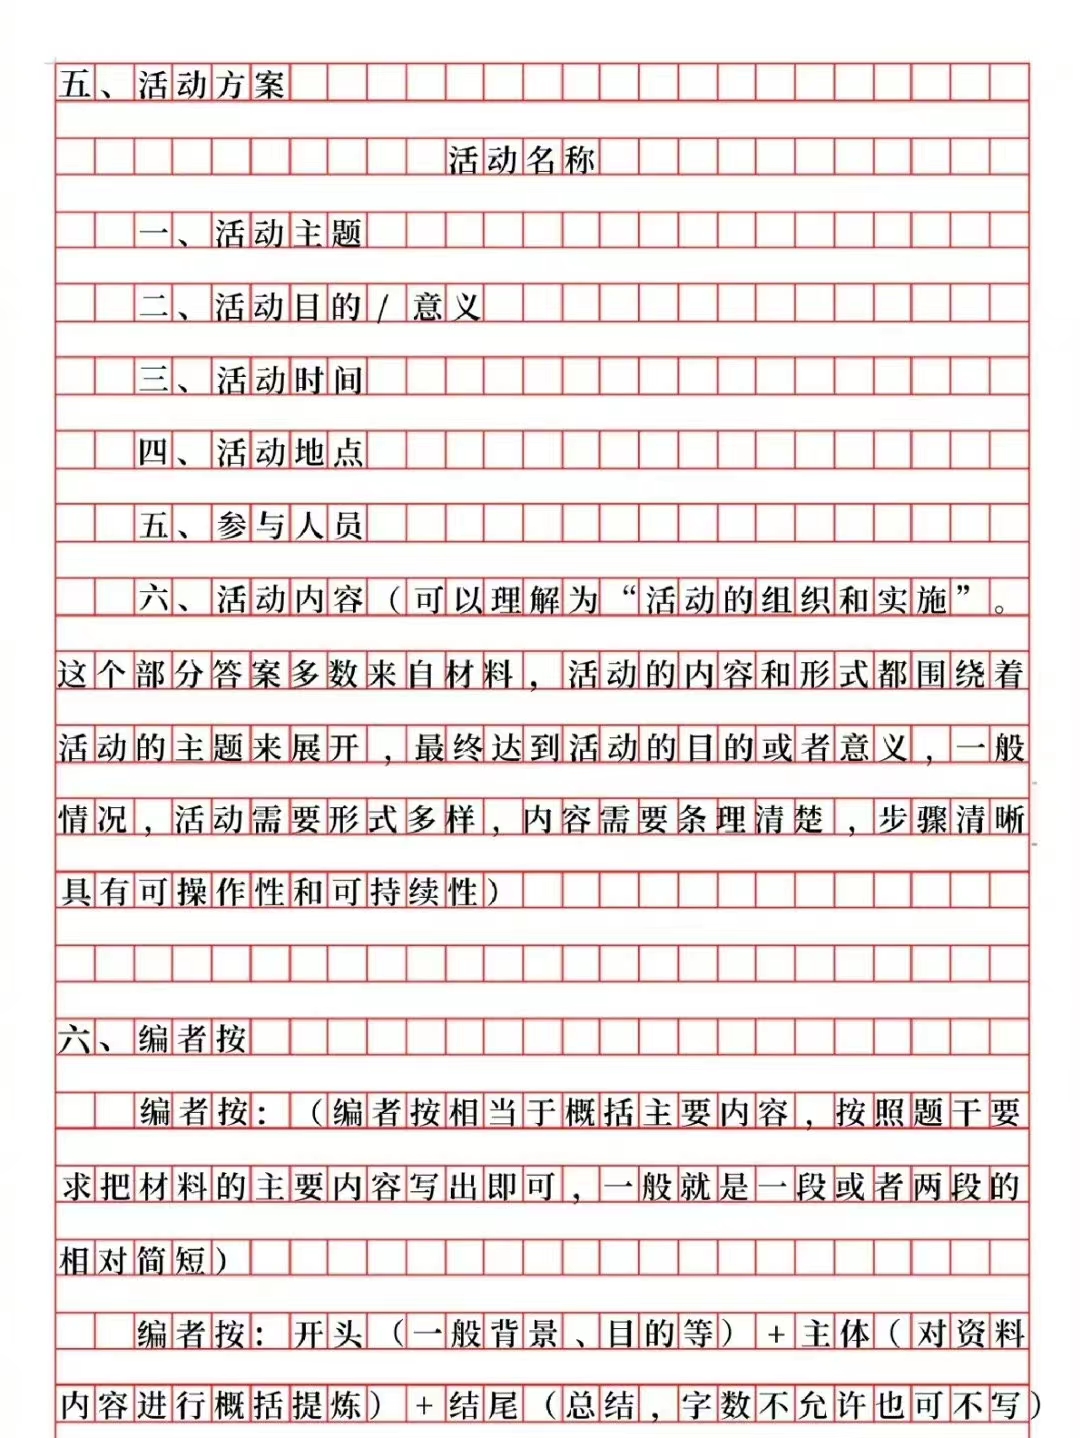 五、活动方案
活动名称
一、活动主题
二、活动目的/意义
三、活动时间
四、活动地点
五、参与人员
六、活动内容（可以理解为“活动的组织和实施”。
这个部分答案多数来自材料，活动的内容和形式都围绕着
活动的主题来展开，最终达到活动的目的或者意义，一般
情况，活动需要形式多样，内容需要条理清楚，步骤清晰
具有可操作性和可持续性）
六、编者按
编者按：（编者按相当于概括主要内容，按照题干要
求把材料的主要内容写出即可，一般就是一段或者两段的
相对简短）
编者按：开头（一般背景、目的等）+主体（对资料
内容进行概括提炼）+结尾（总结，字数不允许也可不写）